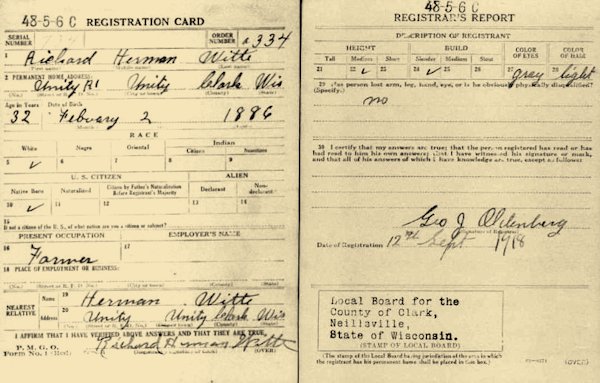 48-5-6 C REGISTRATION CARD
SERIAL NUMBER
ORDER NUMBER a334
1 Richard Herman Witte
2 PERMANENT HOME ADDRESS:
Unity R1 Unity Clark Wis
Age in Years Date of Birth
32 Febuary 2 1886
RACE
White Negro Oriental Indian
Citizen Noncitizen
5 ✓ 6 7 8 9
U. S. CITIZEN ALIEN
Native Born Naturalized Citizen by Father's Naturalization Before Registrant's Majority Declarant Non-declarant
10 ✓ 11 12 13 14
15
If not a citizen of the U. S., of what nation are you a citizen or subject?
PRESENT OCCUPATION EMPLOYER'S NAME
16 Farmer 17
18 PLACE OF EMPLOYMENT OR BUSINESS:
NEAREST RELATIVE
Name 19 Herman Witte
Address 20 Unity Unity Clark Wis
I AFFIRM THAT I HAVE VERIFIED ABOVE ANSWERS AND THAT THEY ARE TRUE
P. M. G. O.
Form No. 1 (Red) Richard Herman Witte (OVER)
48-5-6 C
REGISTRAR'S REPORT
DESCRIPTION OF REGISTRANT
HEIGHT BUILD COLOR OF EYES COLOR OF HAIR
Tall Medium Short Slender Medium Stout
21 22 ✓ 23 24 ✓ 25 26 27 gray 28 light
29 Has person lost arm, leg, hand, eye, or is he obviously physically disqualified?
(Specify.)
no
30 I certify that my answers are true; that the person registered has read or has
had read to him his own answers; that I have witnessed his signature or mark,
and that all of his answers of which I have knowledge are true, except as follows:
Geo J. Oldenberg
Date of Registration 12th Sept 1918
Local Board for the
County of Clark,
Neillsville,
State of Wisconsin.
(STAMP OF LOCAL BOARD)
(The stamp of the Local Board having jurisdiction of the area in which
the registrant has his permanent home shall be placed in this box.)
(OVER)